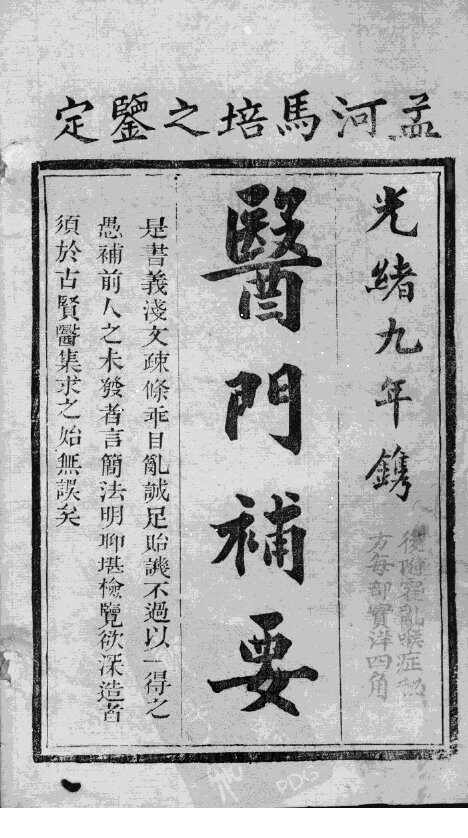 孟河馬培之鑒定
光緒九年鐫
後附霍亂喉症
方每部實洋四角
醫門補要
是書義淺文疎條乖目亂誠足貽譏不過以一得之
愚補前人之未發者言簡法明聊堪檢覽欲深造者
須於古賢醫集求之始無誤矣
PDG